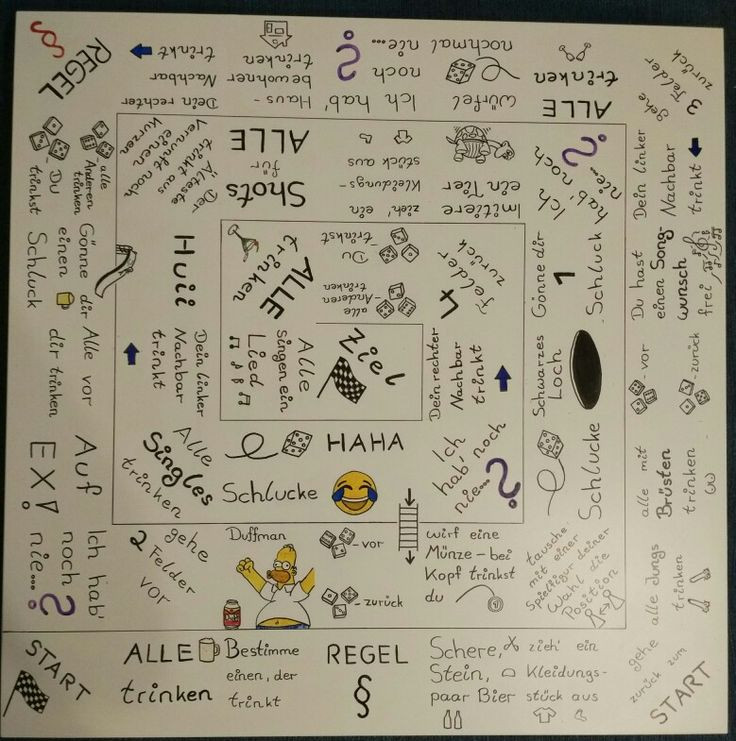 START
ALLE
trinken
Bestimme
einen, der
trinkt
REGEL
§
Schere,
Stein,
paar Bier
zieh' ein
Kleidungs-
stück aus
gehe
zurück zum
START
alle Jungs
trinken
alle mit
Brüsten
trinken
-vor
-zurück
Du hast
einen Song-
wunsch
frei
Dein linker
Nachbar
trinkt
gehe
3 Felder
zurück
ALLE
trinken
Würfel
nochmal
Ich hab'
noch
nie...
?
Haus-
bewohner
trinken
Dein rechter
Nachbar
trinkt
REGEL
§
alle
Anderen
trinken
- Du
trinkst
Gönne dir
einen
Schluck
Alle vor
dir trinken
Auf
EX!
Ich hab'
noch
nie...
?
gehe
2 Felder
vor
Duffman
-vor
-zurück
wirf eine
Münze - bei
Kopf trinkst
du
tausche
mit einer
Spielfigur deiner
Wahl die
Position
Schlucke
Schwarzes
Loch
Gönne dir
1
Schluck
Ich
hab' noch
nie...
?
Imitiere
ein Tier
zieh' ein
Kleidungs-
stück aus
Shots
für
ALLE
Der
Älteste
trinkt aus
Vernunft noch
einen
Kurzen
Huii
Dein linker
Nachbar
trinkt
Alle
Singles
trinken
Schlucke
HAHA
Ich
hab' noch
nie...
?
Dein rechter
Nachbar
trinkt
4 Felder
zurück
Du
trinkst
alle
-Anderen
trinken
ALLE
trinken
Alle
singen ein
Lied
Ziel